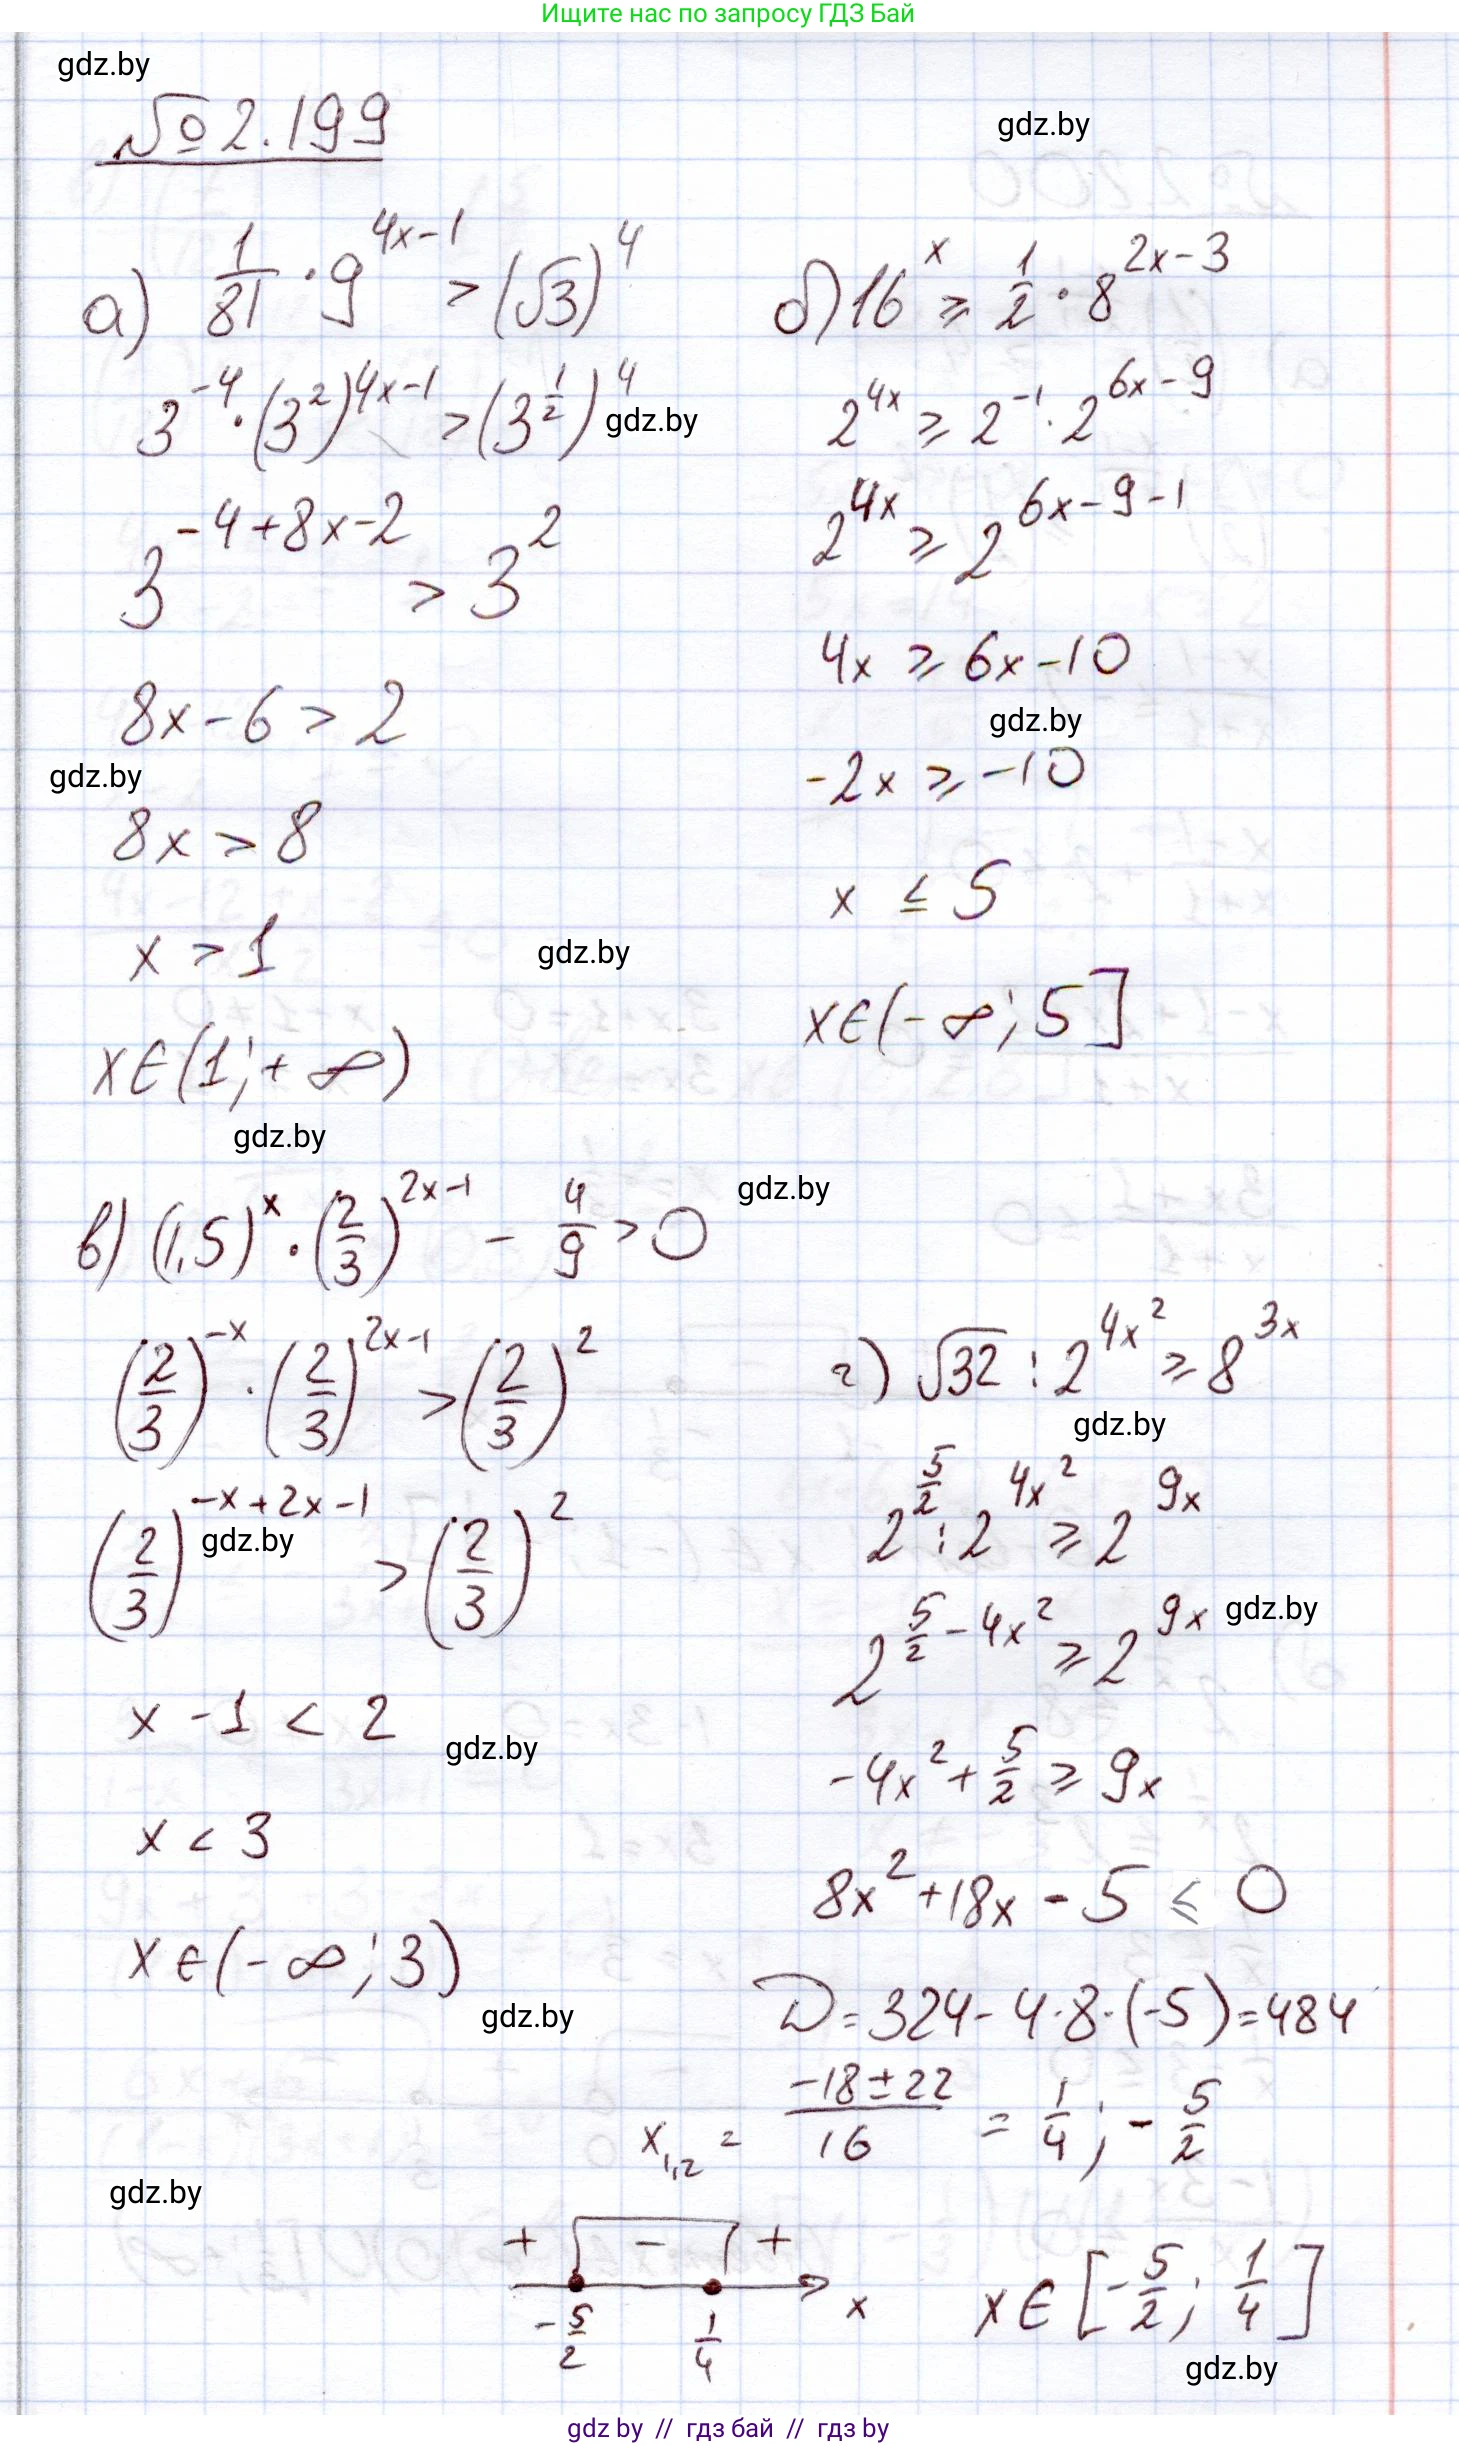 Ищите нас по запросу ГДЗ Бай
gdz.by
№ 2.199
gdz.by
а) 1/81 · 9^(4x-1) > (√3)^4
3^(-4) · (3^2)^(4x-1) > (3^(1/2))^4
gdz.by
3^(-4+8x-2) > 3^2
8x - 6 > 2
gdz.by
8x > 8
x > 1
gdz.by
x∈(1; +∞)
gdz.by
б) 16^x ⩾ 1/2 · 8^(2x-3)
2^(4x) ⩾ 2^(-1) · 2^(6x-9)
2^(4x) ⩾ 2^(6x-9-1)
4x ⩾ 6x-10
gdz.by
-2x ⩾ -10
x ≤ 5
x∈(-∞; 5]
в) (1,5)^x · (2/3)^(2x-1) - 4/9 > 0
gdz.by
(2/3)^(-x) · (2/3)^(2x-1) > (2/3)^2
(2/3)^(-x+2x-1) > (2/3)^2
gdz.by
x - 1 < 2
gdz.by
x < 3
x∈(-∞; 3)
gdz.by
г) √32 : 2^(4x^2) ⩾ 8^(3x)
gdz.by
2^(5/2) : 2^(4x^2) ⩾ 2^(9x)
2^(5/2 - 4x^2) ⩾ 2^(9x)
gdz.by
-4x^2 + 5/2 ⩾ 9x
8x^2 + 18x - 5 ≤ 0
D = 324 - 4·8·(-5) = 484
x1,2 = (-18 ± 22)/16 = 1/4; -5/2
gdz.by
+ - +
-5/2 1/4 x
x∈[-5/2; 1/4]
gdz.by
gdz by // гдз бай // гдз by